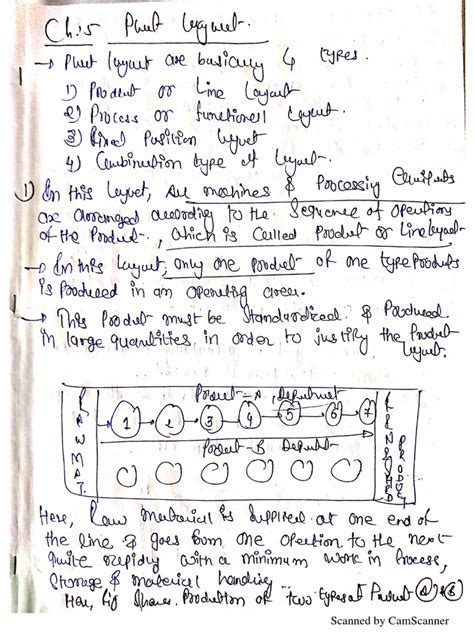 Ch:5 Plant Layout.
→ Plant layout are basically 4 types.
1) Product or Line Layout
2) Process or functional Layout.
3) Fixed Position layout
4) Combination type of Layout.
1) In this Layout, All machines & Processing Equipments
are arranged according to the Sequence of Operations
of the Product, which is Called Product or Line layout.
→ In this Layout, only one product of one type Products
is Produced in an operating area.
→ This Product must be Standardized & Produced
in large quantities in order to justify the Product
layout.
Product-A, Department
RAW MAT.
1 2 3 4 5 6 7
FINISHED PRODUCT
Product-B Department
Here, Raw material is Supplied at one end of
the line & goes from one operation to the next
quite rapidly with a minimum work in Process,
Storage & material handling
Here, fig shows Production of two types of Product A & B
Scanned by CamScanner